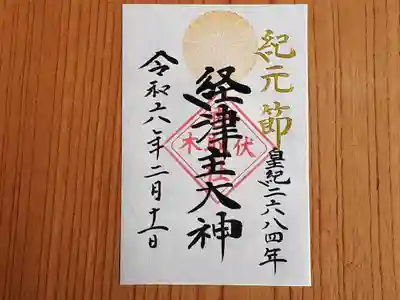 紀元節
皇紀二六八四年
経津主大神
令和六年二月十一日
伏
木